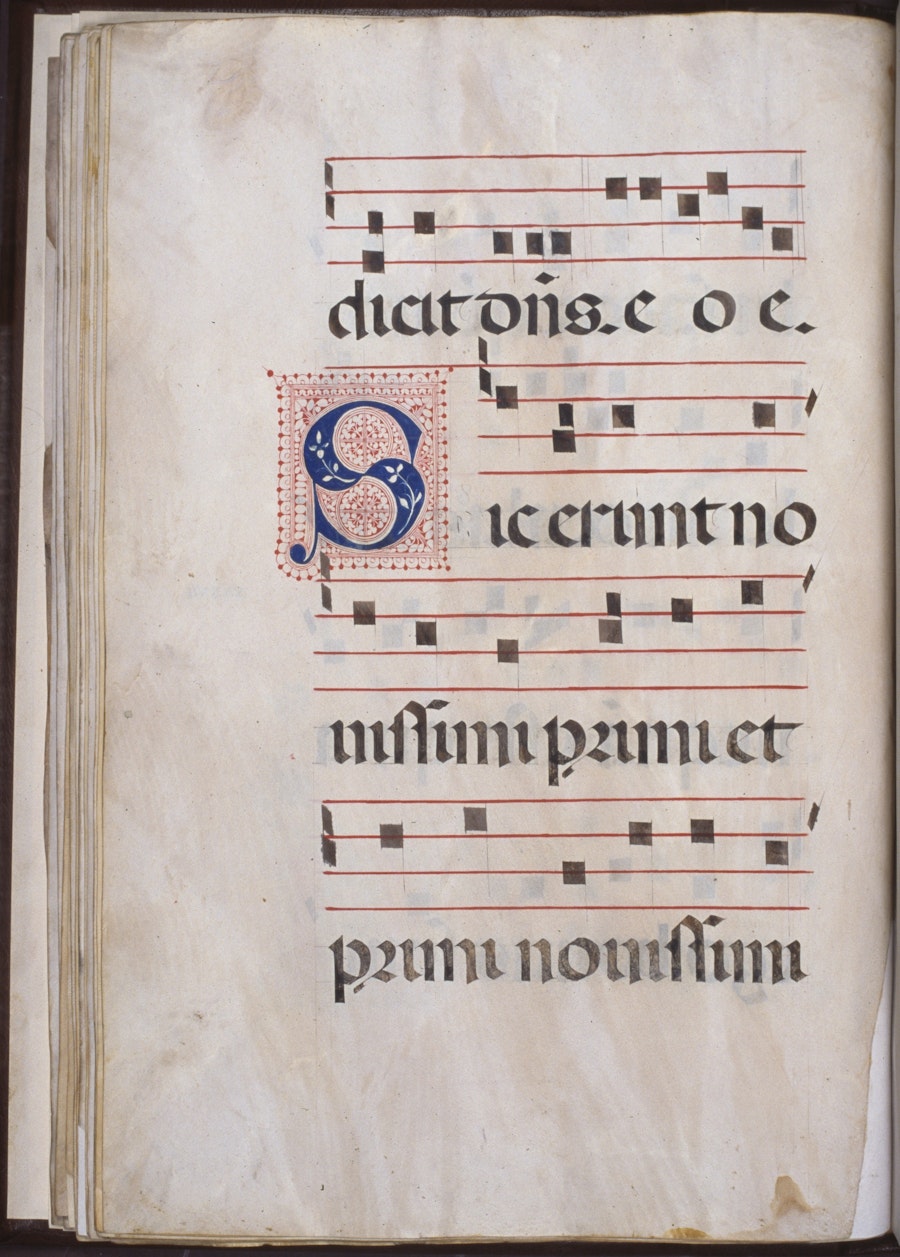 dicit dn̄s. e o e.
Sic erunt no
uissimi primi et
primi nouissimi